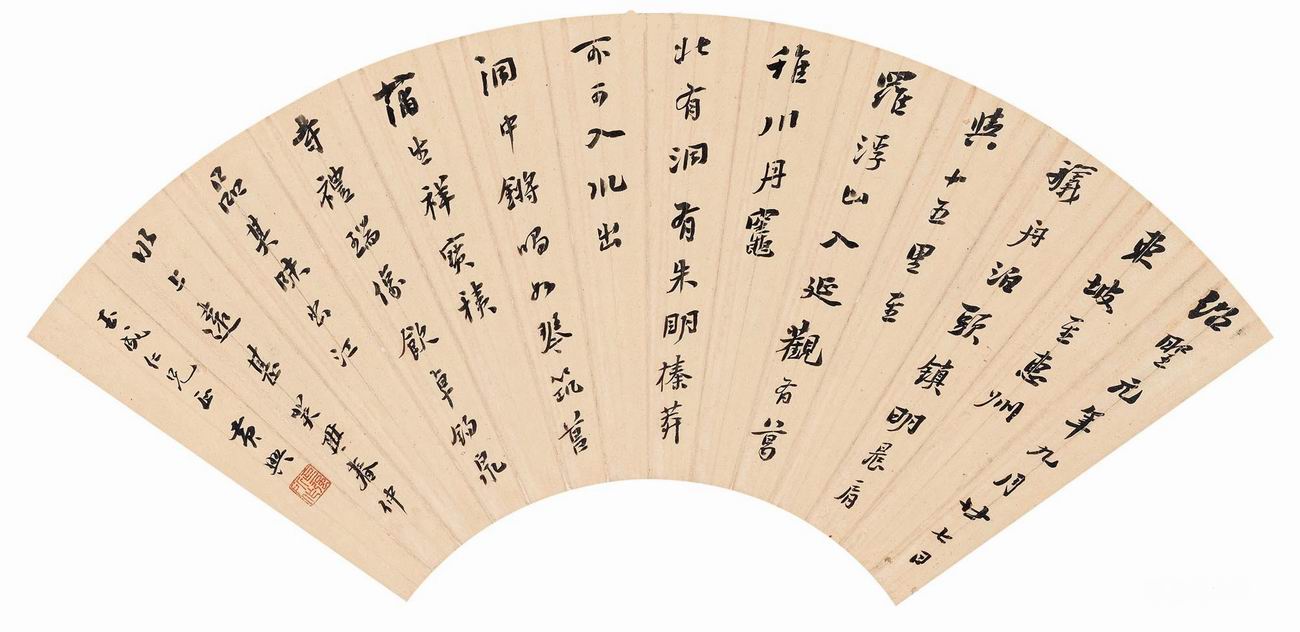 紹聖元年九月廿七日
東坡至惠州
艤舟泊頭鎮明晨肩
輿十五里至
羅浮山入延
觀有葛
稚川丹竈
北有洞有朱明榛莽
不可入水出
洞中鏘鳴如琴筑菖
蒲生祥寶積
寺禮瑞像飲卓錫泉
品其味出江
水上遠甚癸丑春仲
仁兄正 黃興